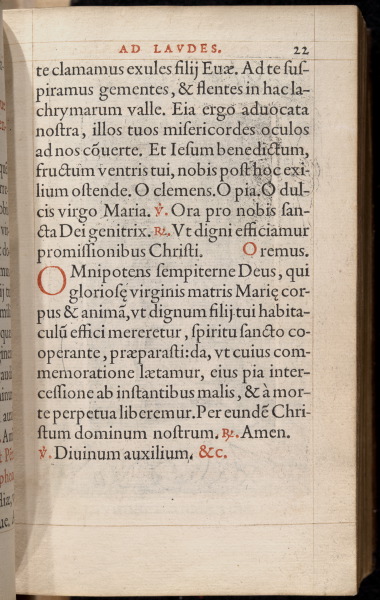 AD LAVDES. 22
te clamamus exules filij Euæ. Ad te ſuſ-
piramus gementes, & flentes in hac la-
chrymarum valle. Eia ergo aduocata
noſtra, illos tuos miſericordes oculos
ad nos cõuerte. Et Ieſum benedictum,
fructum ventris tui, nobis poſt hoc exi-
lium oſtende. O clemens. O pia. O dul-
cis virgo Maria. ℣. Ora pro nobis ſan-
cta Dei genitrix. ℞. Vt digni efficiamur
promiſſionibus Chriſti. Oremus.
OMnipotens ſempiterne Deus, qui
glorioſę virginis matris Marię cor-
pus & animã, vt dignum filij tui habita-
culũ effici mereretur, ſpiritu ſancto co-
operante, præparaſti: da, vt cuius com-
memoratione lætamur, eius pia inter-
ceſſione ab inſtantibus malis, & à mor-
te perpetua liberemur. Per eundẽ Chri-
ſtum dominum noſtrum. ℞. Amen.
℣. Diuinum auxilium, &c.